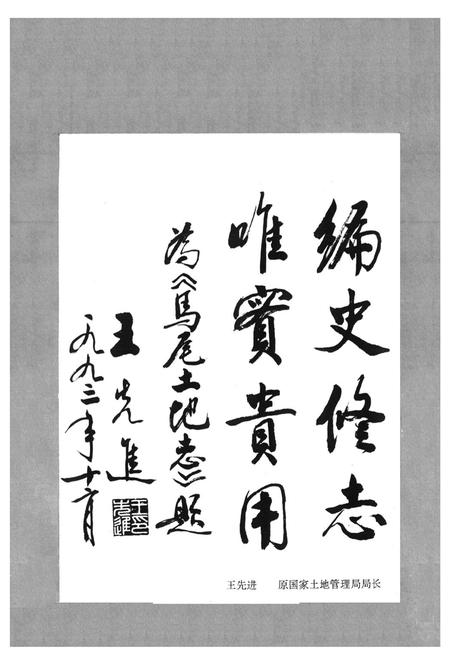 編史修志
唯實貴用
為《馬尾土地志》题
王先進
一九九三年十二月
王先进 原国家土地管理局局长